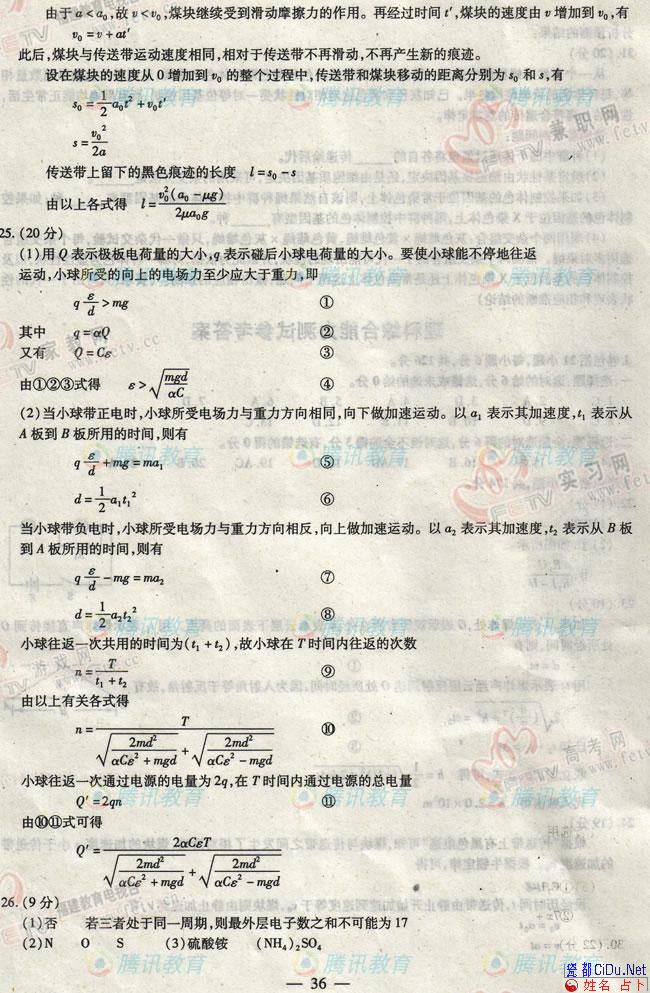 由于 a < a₀,故 v < v₀,煤块继续受到滑动摩擦力的作用。再经过时间 t′,煤块的速度由 v 增加到 v₀,有
v₀ = v + at′
此后,煤块与传送带运动速度相同,相对于传送带不再滑动,不再产生新的痕迹。
设在煤块的速度从 0 增加到 v₀ 的整个过程中,传送带和煤块移动的距离分别为 s₀ 和 s,有
s₀ = 1/2 a₀t² + v₀t′
s = v₀²/2a
传送带上留下的黑色痕迹的长度 l = s₀ − s
由以上各式得 l = v₀²(a₀ − μg)/2μa₀g
25.(20 分)
(1)用 Q 表示极板电荷量的大小,q 表示碰后小球电荷量的大小。要使小球能不停地往返
运动,小球所受的向上的电场力至少应大于重力,即
q ε/d > mg ①
其中 q = αQ ②
又有 Q = Cε ③
由①②③式得 ε > √(mgd/αC) ④
(2)当小球带正电时,小球所受电场力与重力方向相同,向下做加速运动。以 a₁ 表示其加速度,t₁ 表示从
A 板到 B 板所用的时间,则有
q ε/d + mg = ma₁ ⑤
d = 1/2 a₁t₁² ⑥
当小球带负电时,小球所受电场力与重力方向相反,向上做加速运动。以 a₂ 表示其加速度,t₂ 表示从 B 板
到 A 板所用的时间,则有
q ε/d − mg = ma₂ ⑦
d = 1/2 a₂t₂² ⑧
小球往返一次共用的时间为(t₁ + t₂),故小球在 T 时间内往返的次数
n = T/(t₁ + t₂) ⑨
由以上有关各式得
n = T/(√(2md²/(αCε² + mgd)) + √(2md²/(αCε² − mgd))) ⑩
小球往返一次通过电源的电量为 2q,在 T 时间内通过电源的总电量
Q′ = 2qn ⑪
由⑩⑪式可得
Q′ = 2αCεT/(√(2md²/(αCε² + mgd)) + √(2md²/(αCε² − mgd)))
26.(9 分)
(1)否 若三者处于同一周期,则最外层电子数之和不可能为 17
(2)N O S (3)硫酸铵 (NH₄)₂SO₄
— 36 —
腾讯教育
瓷都CiDu.Net
姓名 占卜